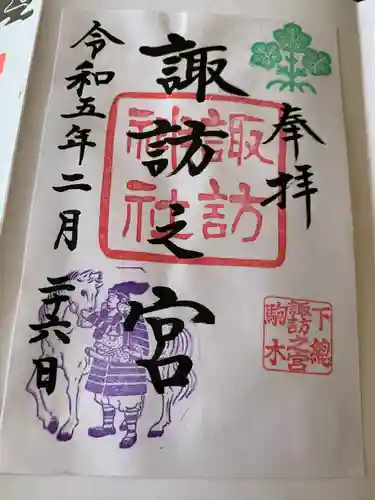 奉拝
諏訪之宮
諏訪
神社
下總
諏訪之宮
駒木
令和五年二月
二十六日